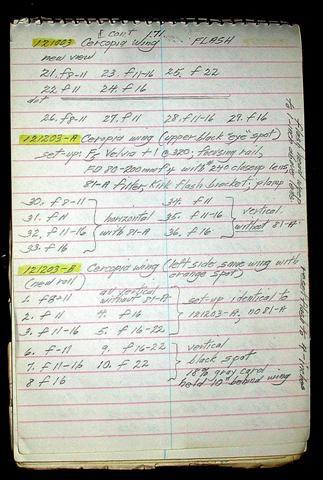 I cont 1.71.
121003 Cercopia wing FLASH
new view
21. f8-11 23. f11-16 25. f 22
22. f 11 24. f 16
dot
26. f8-11 27. f 11 28. f11-16 29. f16
121203-A Cercopia wing (upper black "eye" spot)
set-up: F5 Velvia +1 @ 320, focusing rail,
FD 80-200 macro with #240 closeup lens,
81-A filter, Kirk flash bracket; plamp
30. f8-11
31. f 11
32. f11-16
33. f 16
horizontal
with 81-A
34. f 11
35. f 11-16
36. f 16
vertical
without 81-A
121203-B Cercopia wing (left side same wing with
(new roll) orange spot)
1. f8-11
2. f 11
3. f 11-16
all vertical
without 81-A
4. f 16
5. f 16-22
set-up identical to
121203-A, no 81-A
6. f-11
7. f 11-16
8 f 16
9. f 16-22
10. f 22
vertical
black spot
18% gray card
held 10" behind wing